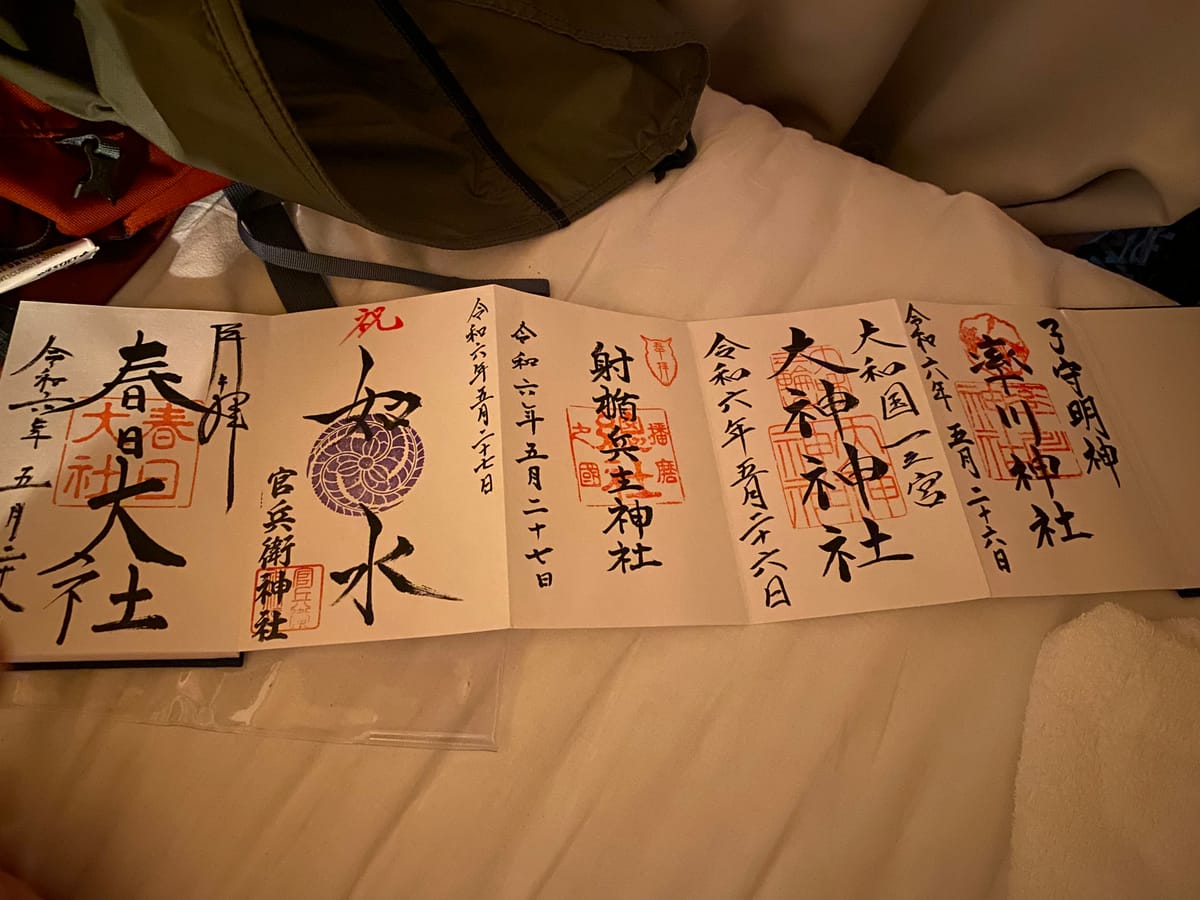 子守明神
率川神社
令和六年 五月二十六日
大和国一之宮
大神神社
令和六年五月二十六日
奉拝
射楯兵主神社
播磨
之國
令和六年五月二十七日
令和六年五月二十七日
祝
如水
官兵衛神社
奉拝
春日大社
春日
大社
令和六年 五月二十八